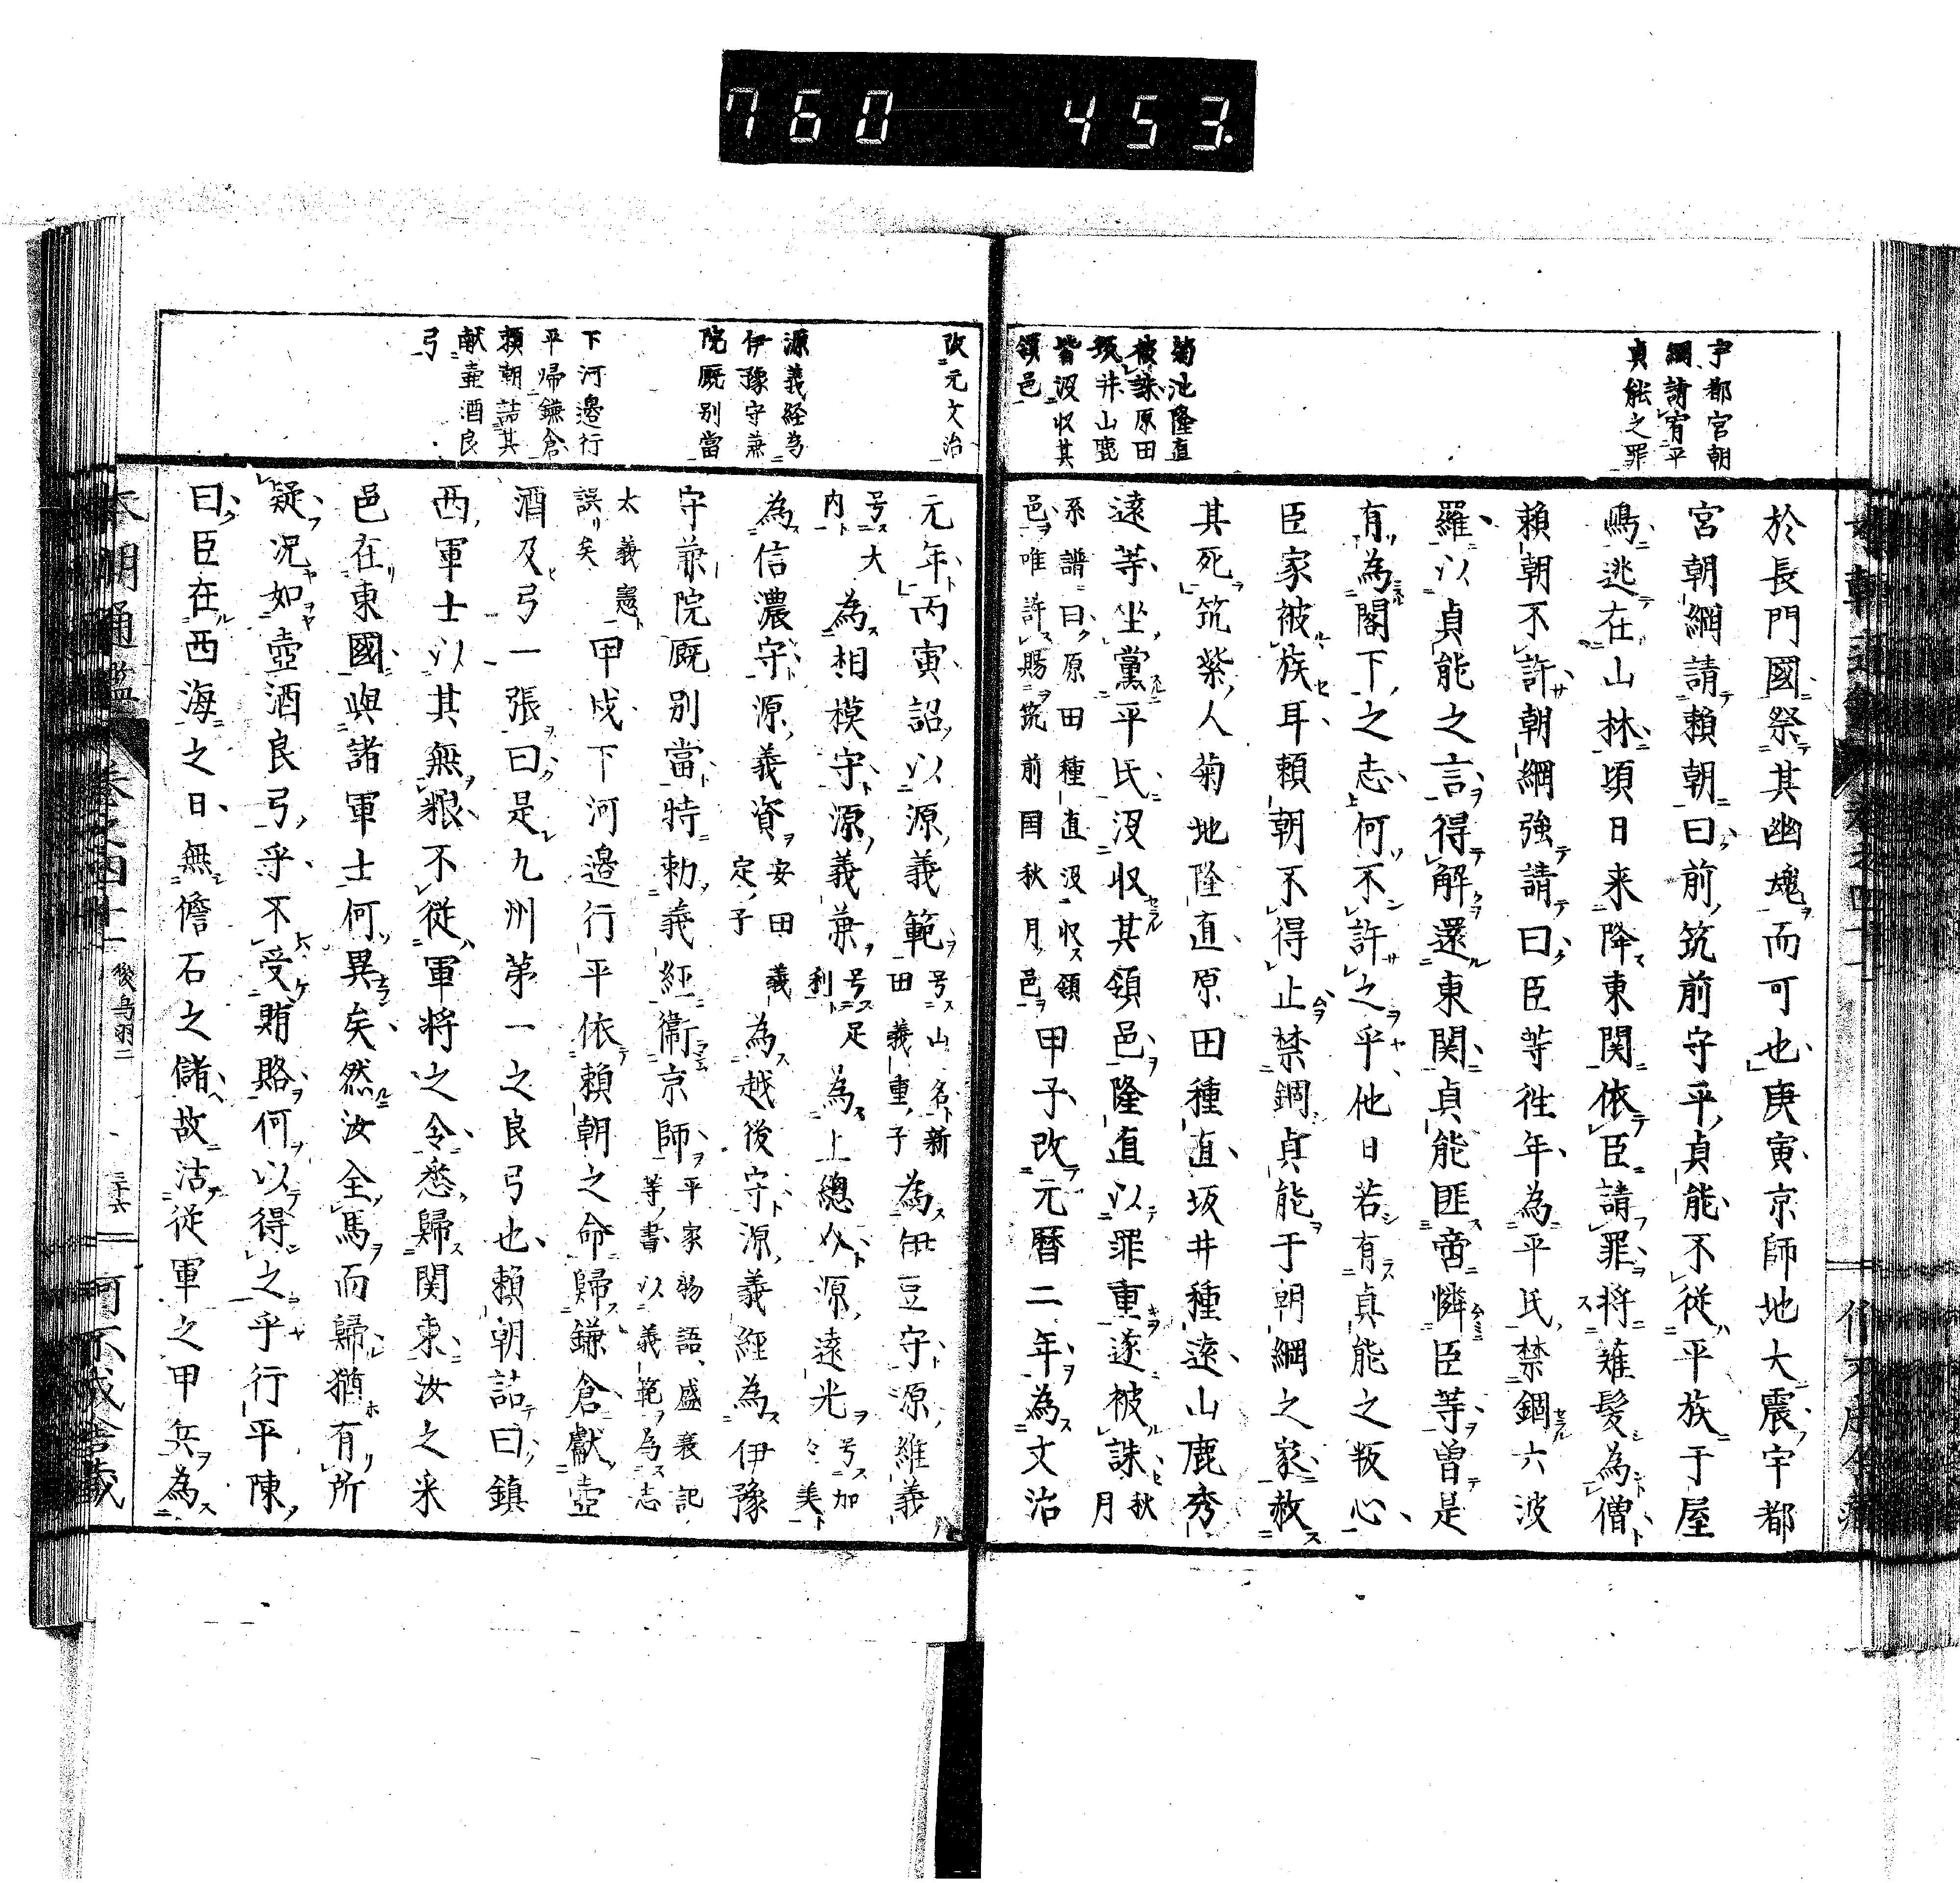 760 453
宇都宮朝
綱請宥平
貞能之罪
菊池隆直
被誅原田
坂井山鹿
皆没収其
領邑
於長門國祭其幽魂而可也庚寅京師地大震宇都
宮朝綱請頼朝曰前筑前守平貞能不従平族于屋
嶋逃在山林頃日来降東関依臣請罪将薙髪為僧
頼朝不許朝綱強請曰臣等徃年為平氏禁錮六波
羅以貞能之言得解還東関貞能匪啻憐臣等曽是
有為閣下之志何不許之乎他日若有貞能之叛心
臣家被族耳頼朝不得止禁錮貞能于朝綱之家赦
其死筑紫人菊地隆直原田種直坂井種遠山鹿秀
遠等坐黨平氏没収其領邑隆直以罪重遂被誅秋月
系譜曰原田種直没収領
邑唯許賜筑前国秋月邑
甲子改元暦二年為文治
改元文治
源義経為
伊豫守兼
院厩别當
下河邉行
平帰鎌倉
頼朝詰其
献壷酒良
弓
元年丙寅詔以源義範号山名新田義重子為伊豆守源維義
号大内為相模守源義兼号足利為上總介源遠光号加々美
為信濃守源義資安田義定子為越後守源義経為伊豫
守兼院厩别當特勅義経衞京師平家物語盛衰記等書以義範為志
太義憲誤矣甲戌下河邉行平依頼朝之命歸鎌倉獻壷
酒及弓一張曰是九州第一之良弓也頼朝詰曰鎮
西軍士以其無粮不従軍将之令悉歸関東汝之采
邑在東國與諸軍士何異矣然汝全馬而歸猶有所
疑况如壺酒良弓乎不受賄賂何以得之乎行平陳
曰臣在西海之日無儋石之儲故沽従軍之甲兵為
本朝通鑑 巻之四十一 後鳥羽二 三十六